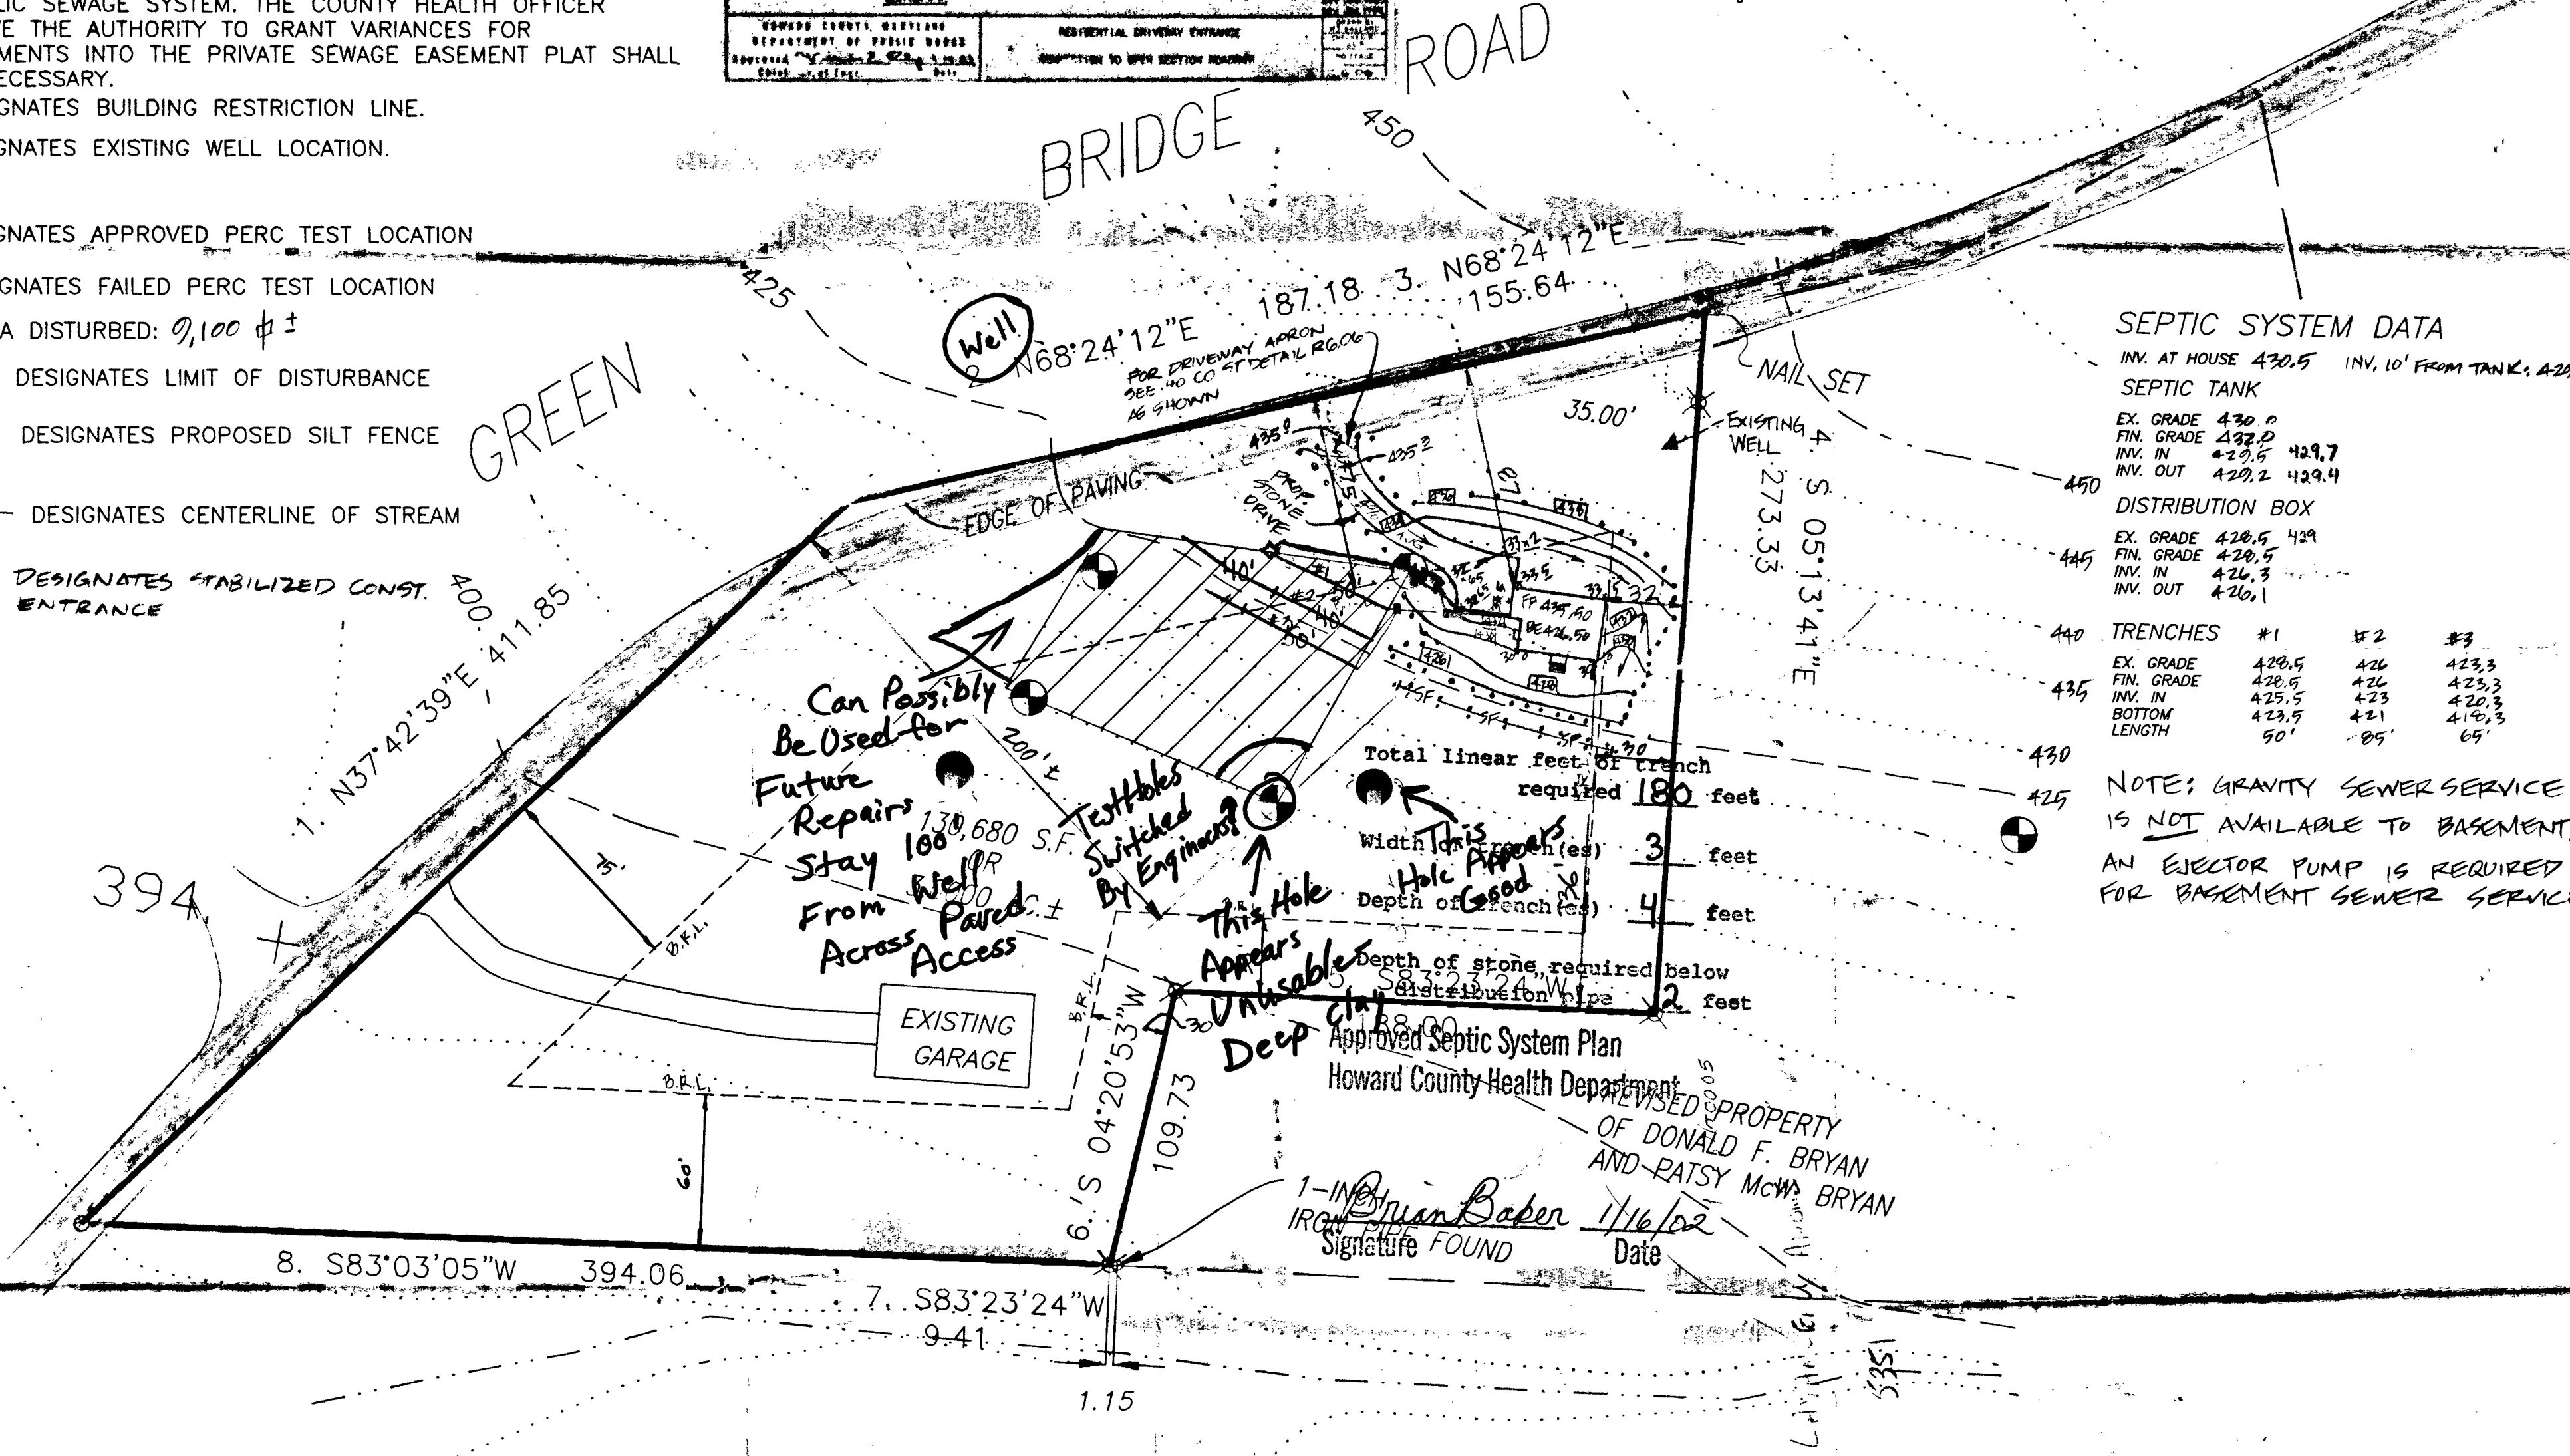 LIC SEWAGE SYSTEM. THE COUNTY HEALTH OFFICER
E THE AUTHORITY TO GRANT VARIANCES FOR
MENTS INTO THE PRIVATE SEWAGE EASEMENT PLAT SHALL
ECESSARY.
GNATES BUILDING RESTRICTION LINE.
GNATES EXISTING WELL LOCATION.
GNATES APPROVED PERC TEST LOCATION
GNATES FAILED PERC TEST LOCATION
A DISTURBED: 9,100 ⌀ ±
DESIGNATES LIMIT OF DISTURBANCE
DESIGNATES PROPOSED SILT FENCE
DESIGNATES CENTERLINE OF STREAM
DESIGNATES STABILIZED CONST.
ENTRANCE
HOWARD COUNTY, MARYLAND
DEPARTMENT OF PUBLIC WORKS
RESIDENTIAL DRIVEWAY ENTRANCE
CONNECTION TO OPEN SECTION ROADWAY
GREEN
BRIDGE
ROAD
450
425
400
394
Well
2. N68°24'12"E 187.18
3. N68°24'12"E
155.64
FOR DRIVEWAY APRON
SEE HO CO ST DETAIL R6.06
AS SHOWN
EDGE OF PAVING
PROP.
STONE
DRIVE
35.00'
NAIL SET
EXISTING
WELL
4. S 05°13'41"E
273.33
87
32
40'
#1
50'
#2
40'
#3
50'
FF 435.50
BE 426.50
426
428
SF
SF
1. N37°42'39"E, 411.85
Can Possibly
Be Used for
Future
Repairs
Stay 100'
From Well
Across Paved
Access
200'±
130,680 S.F.
OR
Test Holes
Switched
By Engineers?
This Hole
Appears
Unusable
Deep Clay
This
Hole Appears
Good
75'
B.R.L.
B.R.L.
B.R.L.
60'
30
36
EXISTING
GARAGE
Total linear feet of trench
required 180 feet
Width of trench(es) 3 feet
Depth of trench(es) 4 feet
Depth of stone required below
distribution pipe 2 feet
5. S83°23'24"W
188.00
Approved Septic System Plan
Howard County Health Department
Brian Baker 1/16/02
Signature Date
REVISED PROPERTY
OF DONALD F. BRYAN
AND PATSY McW. BRYAN
1-INCH
IRON PIPE FOUND
6. S 04°20'53"W
109.73
8. S83°03'05"W 394.06
7. S83°23'24"W
9.41
1.15
5351
450
445
440
435
430
425
SEPTIC SYSTEM DATA
INV. AT HOUSE 430.5 INV. 10' FROM TANK:
SEPTIC TANK
EX. GRADE 430.0
FIN. GRADE 432.0
INV. IN 429.5 429.7
INV. OUT 429.2 429.4
DISTRIBUTION BOX
EX. GRADE 428.5 429
FIN. GRADE 428.5
INV. IN 426.3
INV. OUT 426.1
TRENCHES #1 #2 #3
EX. GRADE 428.5 426 423.3
FIN. GRADE 428.5 426 423.3
INV. IN 425.5 423 420.3
BOTTOM 423.5 421 418.3
LENGTH 50' 85' 65'
NOTE: GRAVITY SEWER SERVICE
IS NOT AVAILABLE TO BASEMENT.
AN EJECTOR PUMP IS REQUIRED
FOR BASEMENT SEWER SERVICE